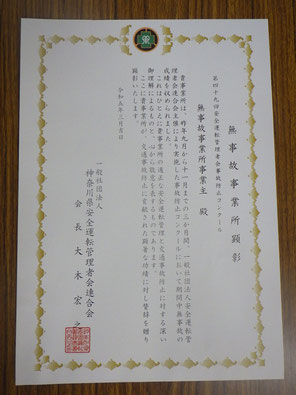 無事故事業所顕彰
第四十九回安全運転管理者会事故防止コンクール
無事故事業所事業主 殿
貴事業所は、昨年九月から十一月までの三か月間、一般社団法人安全運転管
理者会連合会主催により実施した事故防止コンクールにおいて期間中無事故の
成績を収められました。
これはひとえに貴事業所の適正な安全運転管理と交通事故防止に対する深い
御理解によるものと、心から敬意を表するものであります。
ここに貴事業所が、交通事故防止に貢献された顕著な功績に対し賛辞を贈り
顕彰いたします。
令和五年三月吉日
一般社団法人
神奈川県安全運転管理者会連合会
会長 大木宏之